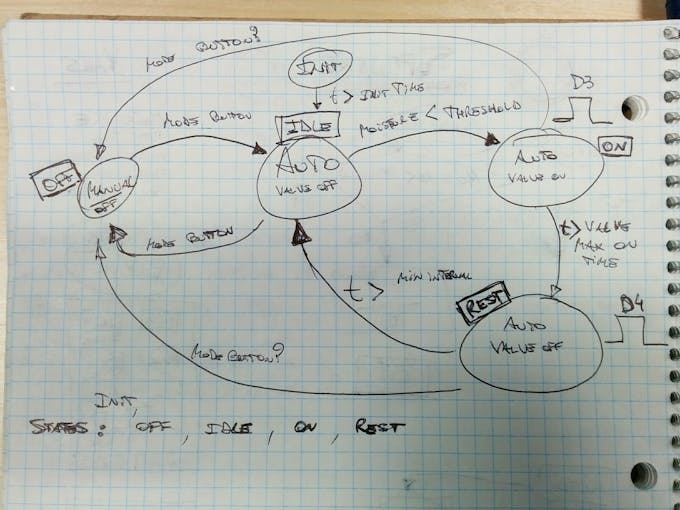 MODE BUTTON?
INIT
D3
t > INIT TIME
MODE BUTTON
IDLE
MOISTURE < THRESHOLD
OFF
MANUAL
OFF
AUTO
VALVE OFF
AUTO
VALVE ON
ON
MODE BUTTON
t > VALVE
MAX ON
TIME
t > MIN INTERVAL
REST
D4
AUTO
VALVE OFF
MODE BUTTON?
INIT,
STATES: OFF, IDLE, ON, REST